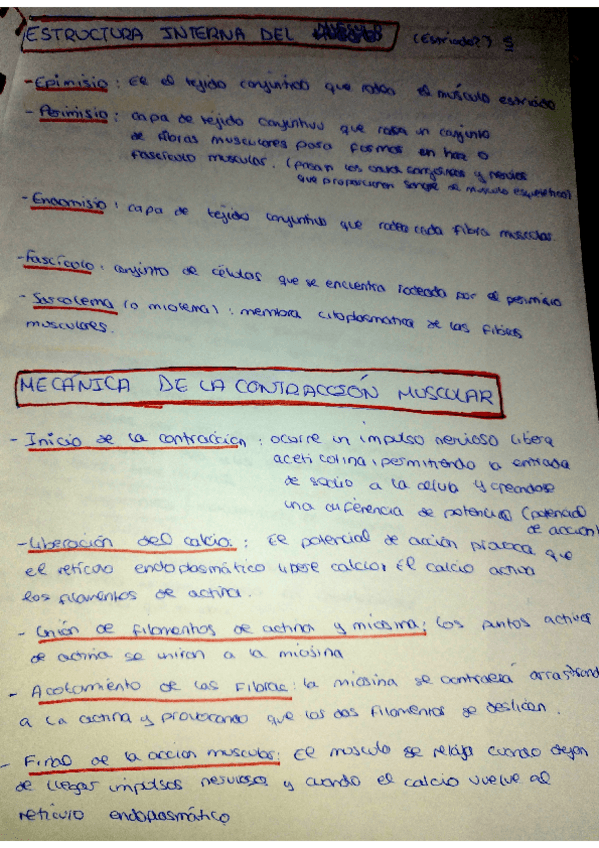 ESTRUCTURA INTERNA DEL (Estriado?) S
- Epimisio : Es el tejido conjuntivo que rodea el músculo estriado
- Perimisio : capa de tejido conjuntivo que rodea un conjunto
de fibras musculares para formar un haz o
fascículo muscular. (pasan los vasos sanguíneos y nervios
que proporcionan sangre al musculo esquelético)
- Endomisio : capa de tejido conjuntivo que rodea cada fibra muscular.
- Fascículo : conjunto de células que se encuentra rodeada por el perimisio
- Sarcolema (o miolema) : membra citoplasmatica de las fibras
musculares.
MECÁNICA DE LA CONTRACCIÓN MUSCULAR
- Inicio de la contraccion : ocurre un impulso nervioso libera
aceticolina, permitiendo la entrada
de sodio a la celula y creandose
una diferencia de potencial (potencial
de accion)
- Liberación del calcio : El potencial de acción provoca que
el retículo endoplasmático libere calcio. El calcio activa
los filamentos de actina.
- Unión de filamentos de actina y miosina: Los puntos activos
de actina se uniran a la miosina
- Acotamiento de las Fibras: la miosina se contraerá arrastrando
a la actina y provocando que los dos filamentos se deslicen.
- Final de la accion muscular: El musculo se relaja cuando dejan
de llegar impulsos nerviosos y cuando el calcio vuelve al
retículo endoplasmático